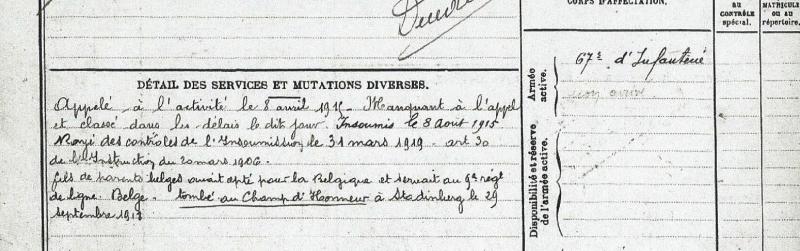 CORPS D'AFFECTATION.
au
CONTRÔLE
spécial.
MATRICULE
ou au
répertoire.
DÉTAIL DES SERVICES ET MUTATIONS DIVERSES.
Appelé à l'activité le 8 avril 1915. Manquant à l'appel
et classé dans les délais le dit jour. Insoumis le 8 Août 1915
Rayé des contrôles de l'Insoumission le 31 mars 1919. art 30
de l'Instruction du 20 mars 1906.
fils de parents belges avait opté pour la Belgique et servait au 9e régt
de ligne Belge. tombé au Champ d'Honneur à Stadenberg le 29
septembre 1918
Armée
active.
67e d'Infanterie
non arrivé
Disponibilité et réserve
de l'armée active.